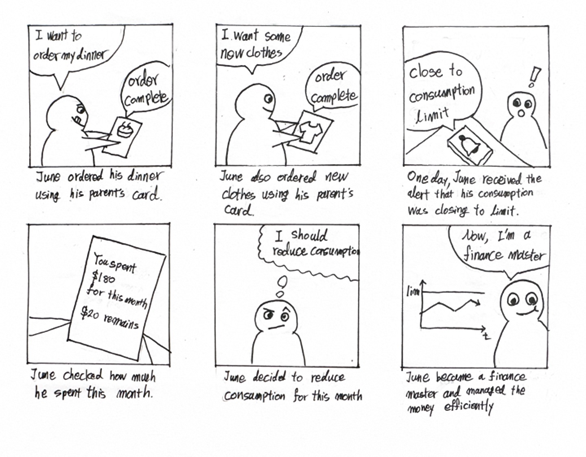 I want to
order my dinner
order
complete
June ordered his dinner
using his parent's card.
I want some
new clothes
order
complete
June also ordered new
clothes using his parent's
card.
close to
consumption
limit
!
One day, June received the
alert that his consumption
was closing to limit.
You spent
$180
for this month
$20 remains
June checked how much
he spent this month.
I should
reduce consumption
June decided to reduce
consumption for this month
Now, I'm a
finance master
lim
t
June became a finance
master and managed the
money efficiently